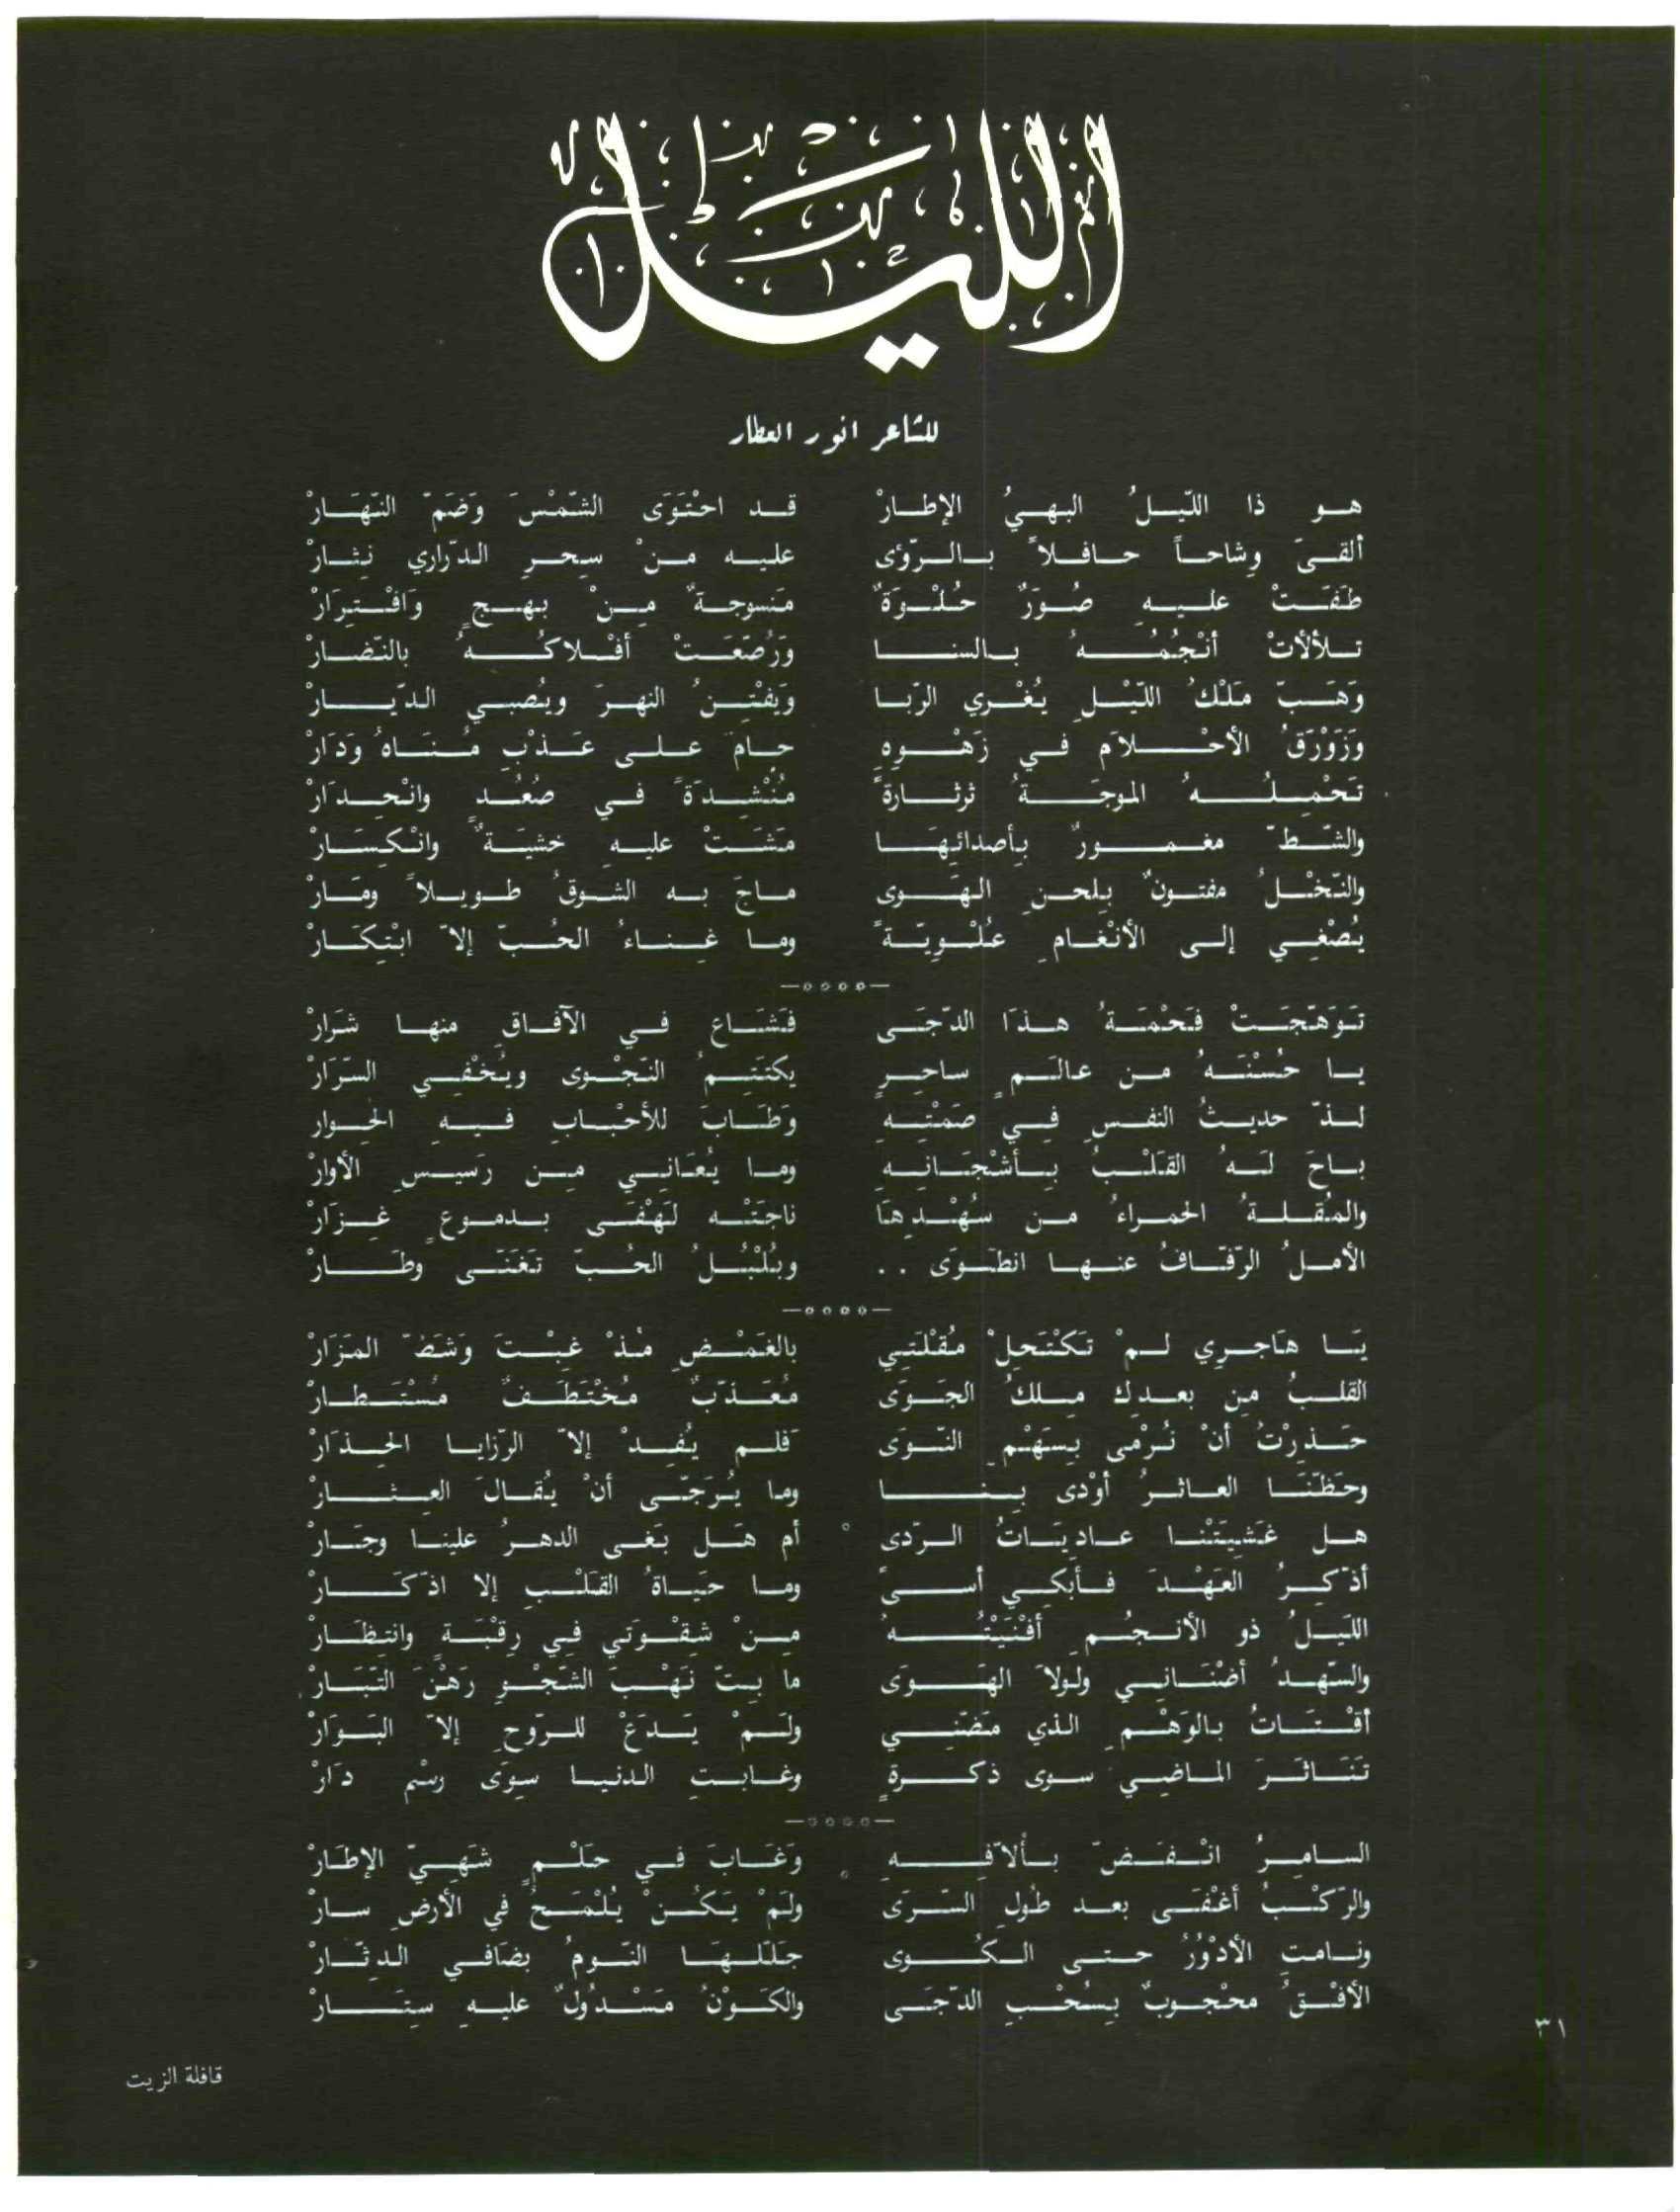 الليل
للشاعر انور العطار
هو ذا اللّيلُ البهيُ الإطارْ قد احْتَوَى الشّمْسَ وَضَمّ النّهَارْ
ألقىَ وِشاحاً حافلاً بالرّؤى عليه منْ سِحرِ الدّراري نِثارْ
طَفَتْ عليهِ صُوَرٌ حُلْوَةٌ مَنسوجةٌ مِنْ بهجٍ وَافْتِرَارْ
تلألأتْ أنْجُمُهُ بالسنا وَرُصّعَتْ أفْلاكُهُ بالنّضارْ
وَهَبّ مَلْكُ اللّيْلِ يُغْري الرّبا وَيَفْتِنُ النهرَ ويُصبي الدّيارْ
وَزَوْرَقُ الأحْلاَمِ في زَهْوِهِ حامَ على عَذْبِ مُنَاهُ وَدَارْ
تَحْمِلُهُ الموجَةُ ثرثارةً مُنْشِدَةً في صُعُدٍ وانْحِدَارْ
والشّطّ مغمورٌ بأصدائِهَا مَشَتْ عليهِ خشيَةٌ وانْكِسَارْ
والنّخْلُ مفتونٌ بِلحنِ الهَوى ماجَ به الشوقُ طويلاً ومَارْ
يُصْغِي إلى الأنْغَامِ عُلْوِيّةً وما غِناءُ الحُبّ إلاّ ابْتِكَارْ
—٥٥٥٥—
تَوَهّجَتْ فَحْمَةُ هذَا الدّجَى فَشَاع في الآفاقِ منها شَرَارْ
يا حُسْنَهُ من عالَمٍ ساحِرٍ يكتَتِمُ النّجْوى ويُخْفِي السّرَارْ
لذّ حديثُ النفسِ فِي صَمْتِهِ وَطَابَ للأحْبَابِ فيهِ الحُوار
باحَ لَهُ القَلْبُ بِأشْجَانِهِ وما يُعَانِي مِن رَسيسِ الأوارْ
والمُقلةُ الحمراءُ من سُهْدِهَا ناجَتْه لَهْفَى بدموعٍ غِزارْ
الأملُ الرّفّافُ عنها انطَوَى .. وبُلْبُلُ الحُبّ تَغَنّى وطَارْ
—٥٥٥٥—
يَا هَاجرِي لمْ تَكْتَحِلْ مُقْلَتِي بالغَمْضِ مُذْ غِبْتَ وَشَطّ المَزَارْ
القلبُ مِن بعدِك مِلكُ الجَوَى مُعَذّبٌ مُخْتَطَفٌ مُسْتَطارْ
حَذِرْتُ أنْ نُرْمى بِسَهْمِ النّوَى فلم يُفِدْ إلاّ الرّزايا الحِذَارْ
وحَظّنَا العاثرُ أوْدى بِنا وما يُرَجّى أنْ يُقالَ العِثارْ
هل غَشِيَتْنا عادِيَاتُ الرّدى أم هَل بَغى الدهرُ علينا وجَارْ
أذْكِرُ العَهْدَ فأبكي أسىً وما حَيَاةُ القَلْبِ إلا اذّكَارْ
اللّيلُ ذو الأنجُمِ أفْنَيْتُهُ مِنْ شِقْوَتي فِي رِقْبَةٍ وانتِظَارْ
والسّهدُ أضْنَاني ولولاَ الهَوَى ما بِتّ نَهْبَ الشّجْوِ رَهْنَ التّبَارْ
أقْتَاتُ بالوَهْمِ الذي مَضّنِي ولَمْ يَدَعْ للرّوحِ إلاّ البَوَارْ
تَنَاثَرَ الماضِي سوى ذكرةٍ وغابتِ الدنيا سِوَى رسْمِ دَارْ
—٥٥٥٥—
السامِرُ انْفَضّ بألاّفِهِ وَغَابَ في حَلْمٍ شَهِيّ الإطَارْ
والرّكْبُ أغْفَى بعد طُولِ السّرَى ولَمْ يَكُنْ يُلْمَحُ فِي الأرْضِ سارْ
ونامتِ الأدْوُرُ حتى الكُوى جَلّلَهَا النّومُ بضَافي الدِثّارْ
الأفْقُ محْجوبٌ بِسُحْبِ الدّجَى والكَوْنُ مَسْدُولٌ عليهِ سِتَارْ
٣١
قافلة الزيت